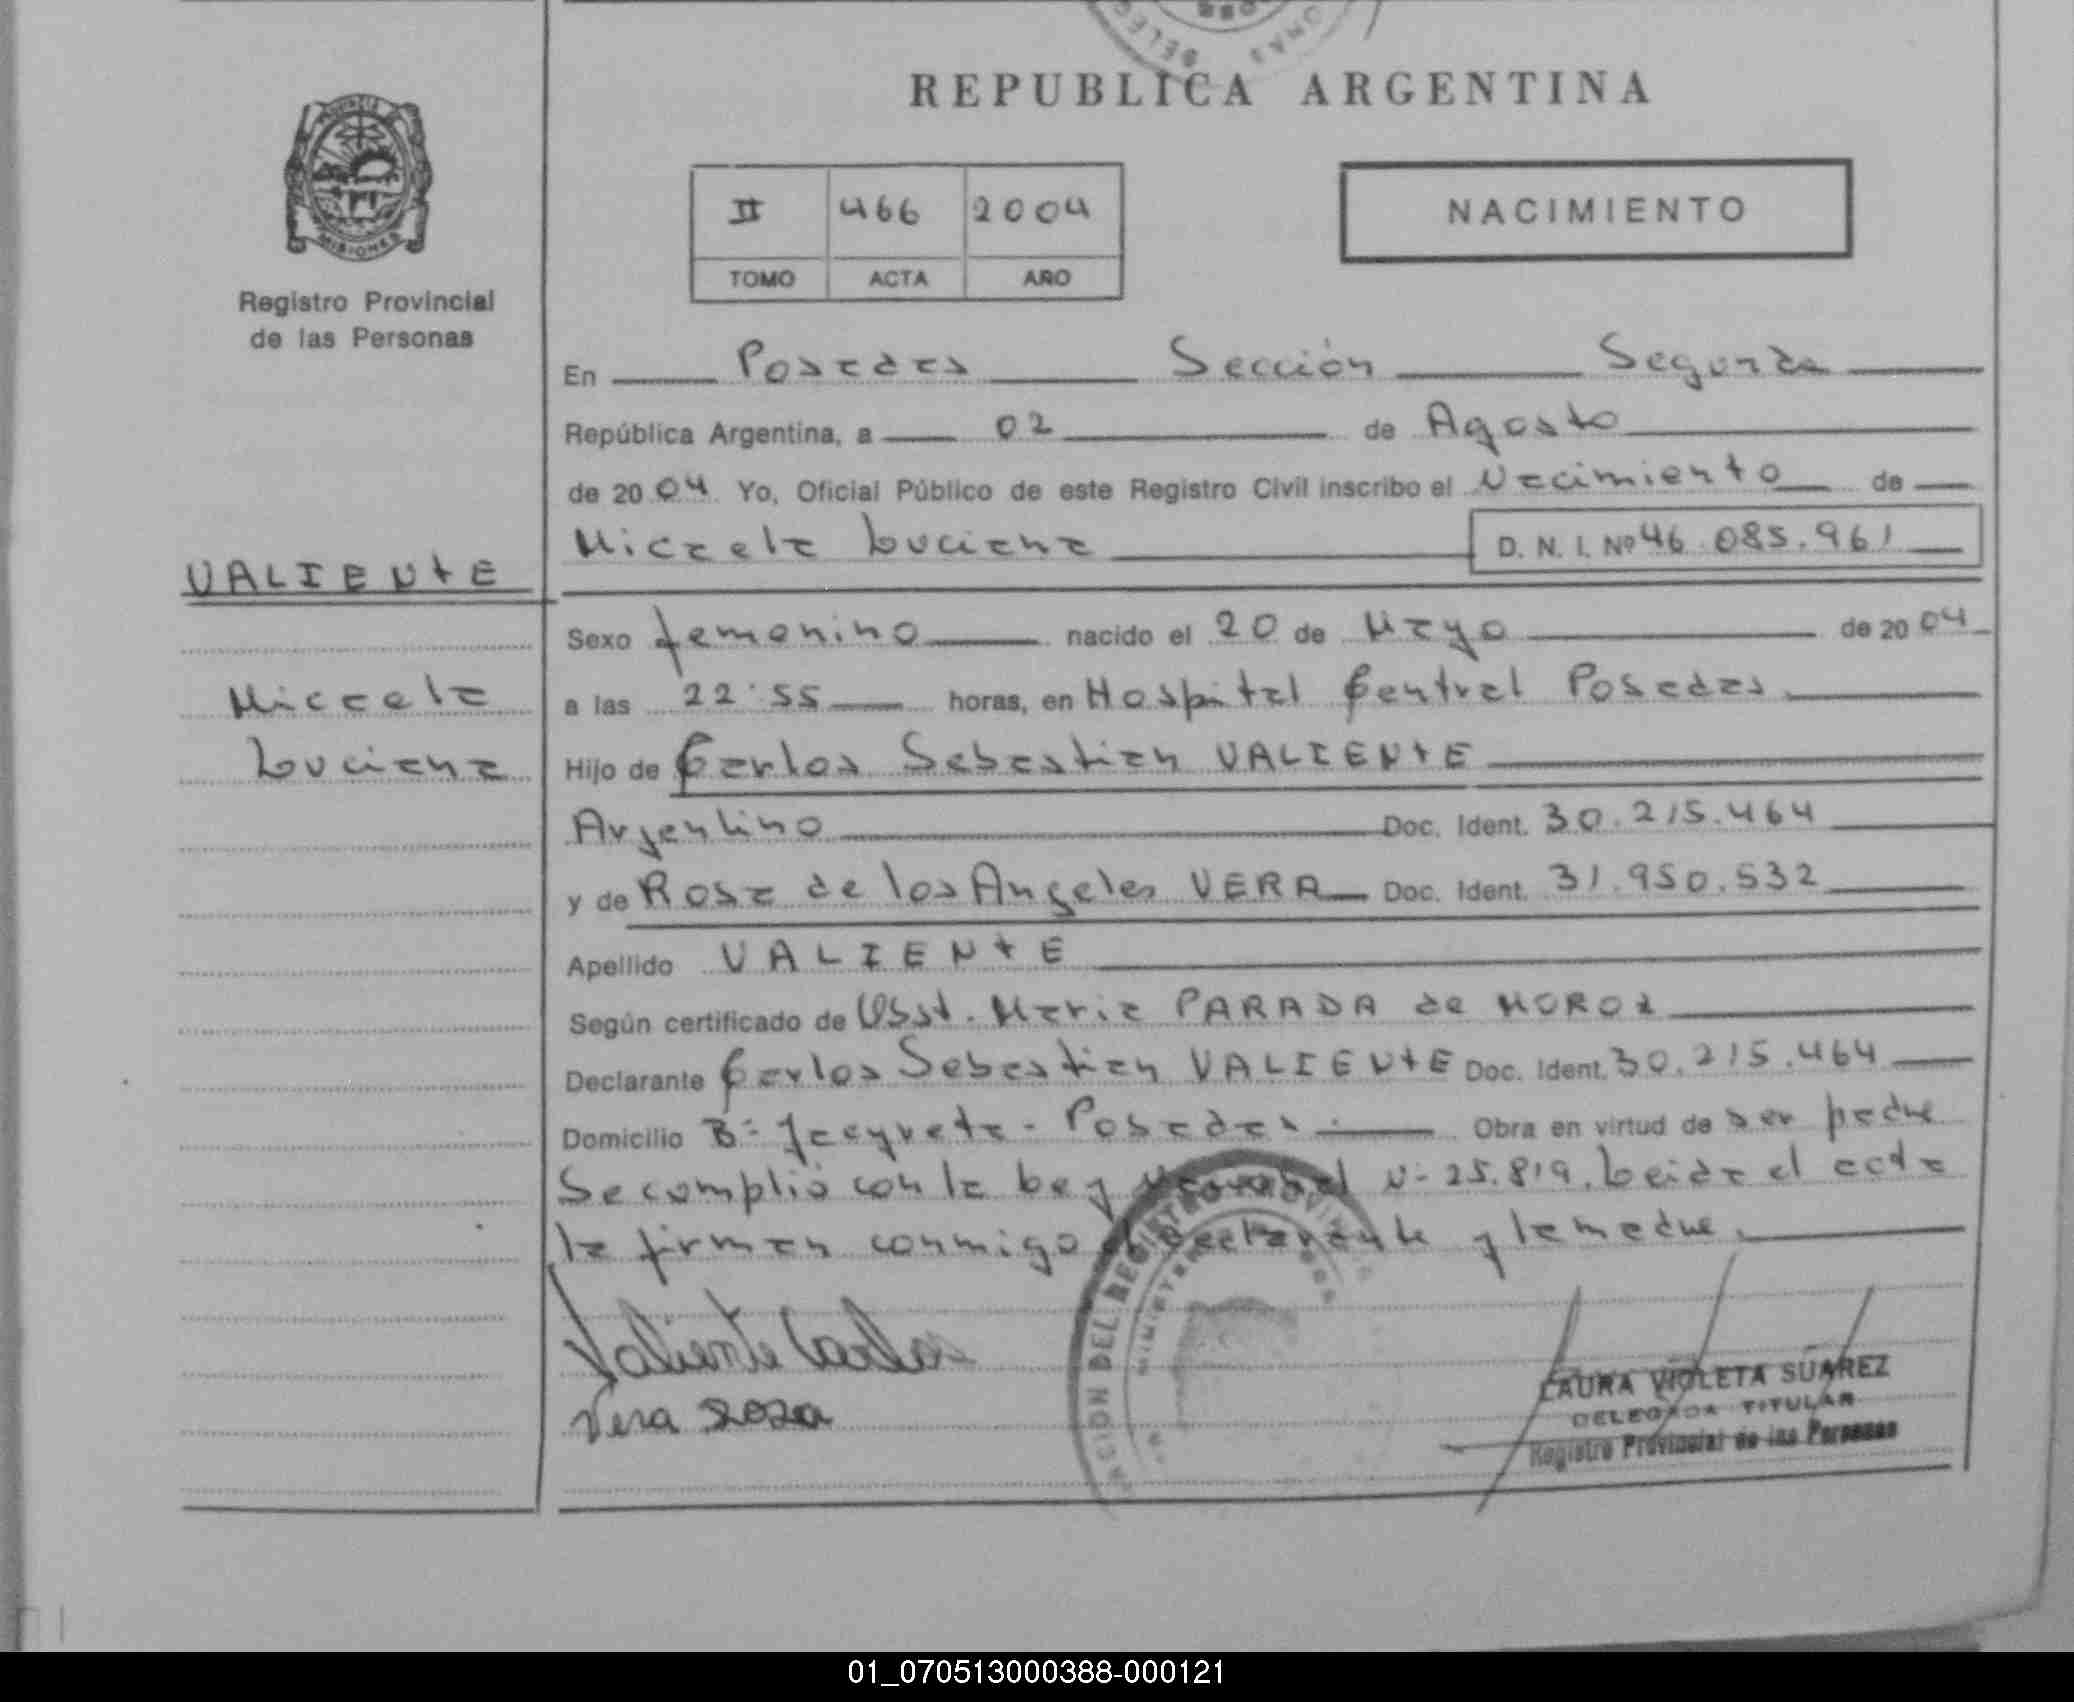 REPUBLICA ARGENTINA
PROVINCIA
MISIONES
Registro Provincial
de las Personas
II 466 2004
TOMO ACTA AÑO
NACIMIENTO
En Posadas Sección Segunda
República Argentina, a 02 de Agosto
de 2004 Yo, Oficial Público de este Registro Civil inscribo el Nacimiento de
Micaela Luciana D. N. I. Nº 46.085.961
VALIENTE
Micaela
Luciana
Sexo femenino nacido el 20 de Mayo de 2004
a las 22:55 horas, en Hospital Central Posadas
Hijo de Carlos Sebastian VALIENTE
Argentino Doc. Ident. 30.215.464
y de Rosa de los Angeles VERA Doc. Ident. 31.950.532
Apellido VALIENTE
Según certificado de Obst. Maria PARADA de MOROZ
Declarante Carlos Sebastian VALIENTE Doc. Ident. 30.215.464
Domicilio Bº Yacyreta - Posadas. Obra en virtud de ser padre
Se complió con la Ley Nacional Nº 25.819. Leida el acta
la firman conmigo el declarante y la madre.
Valiente Carlos
Vera Rosa
LAURA VIOLETA SUAREZ
DELEGADA TITULAR
Registro Provincial de las Personas
01_070513000388-000121